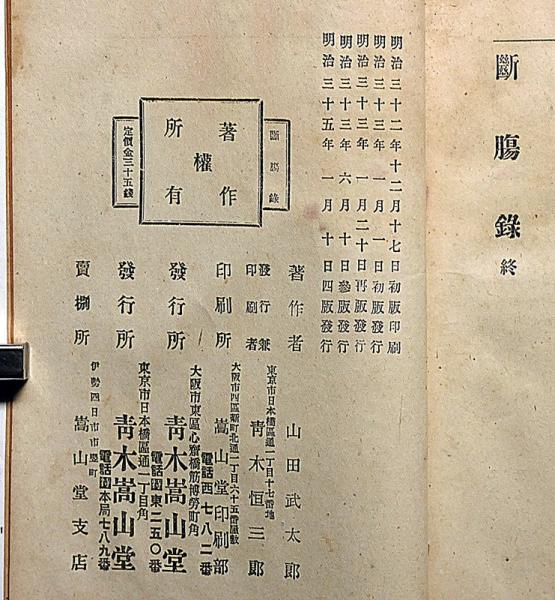 斷膓錄終
明治三十二年十二月十七日初版印刷
明治三十三年一月一日初版發行
明治三十三年一月二十日再版發行
明治三十三年六月十日參版發行
明治三十五年一月十日四版發行
斷膓錄
著作
權
所有
定價金三十五錢
著作者 山田武太郎
東京市日本橋區通一丁目十七番地
發行兼印刷者 靑木恒三郎
大阪市西區 町北通一丁目六十五番屋敷
印刷所 嵩山堂印刷部
電話西七八二番
大阪市東區心齋橋筋博勞町角
發行所 靑木嵩山堂
電話 東二五〇番
東京市日本橋區通一丁目角
發行所 靑木嵩山堂
電話 本局七八九番
伊勢四日市市 町
賣捌所 嵩山堂支店